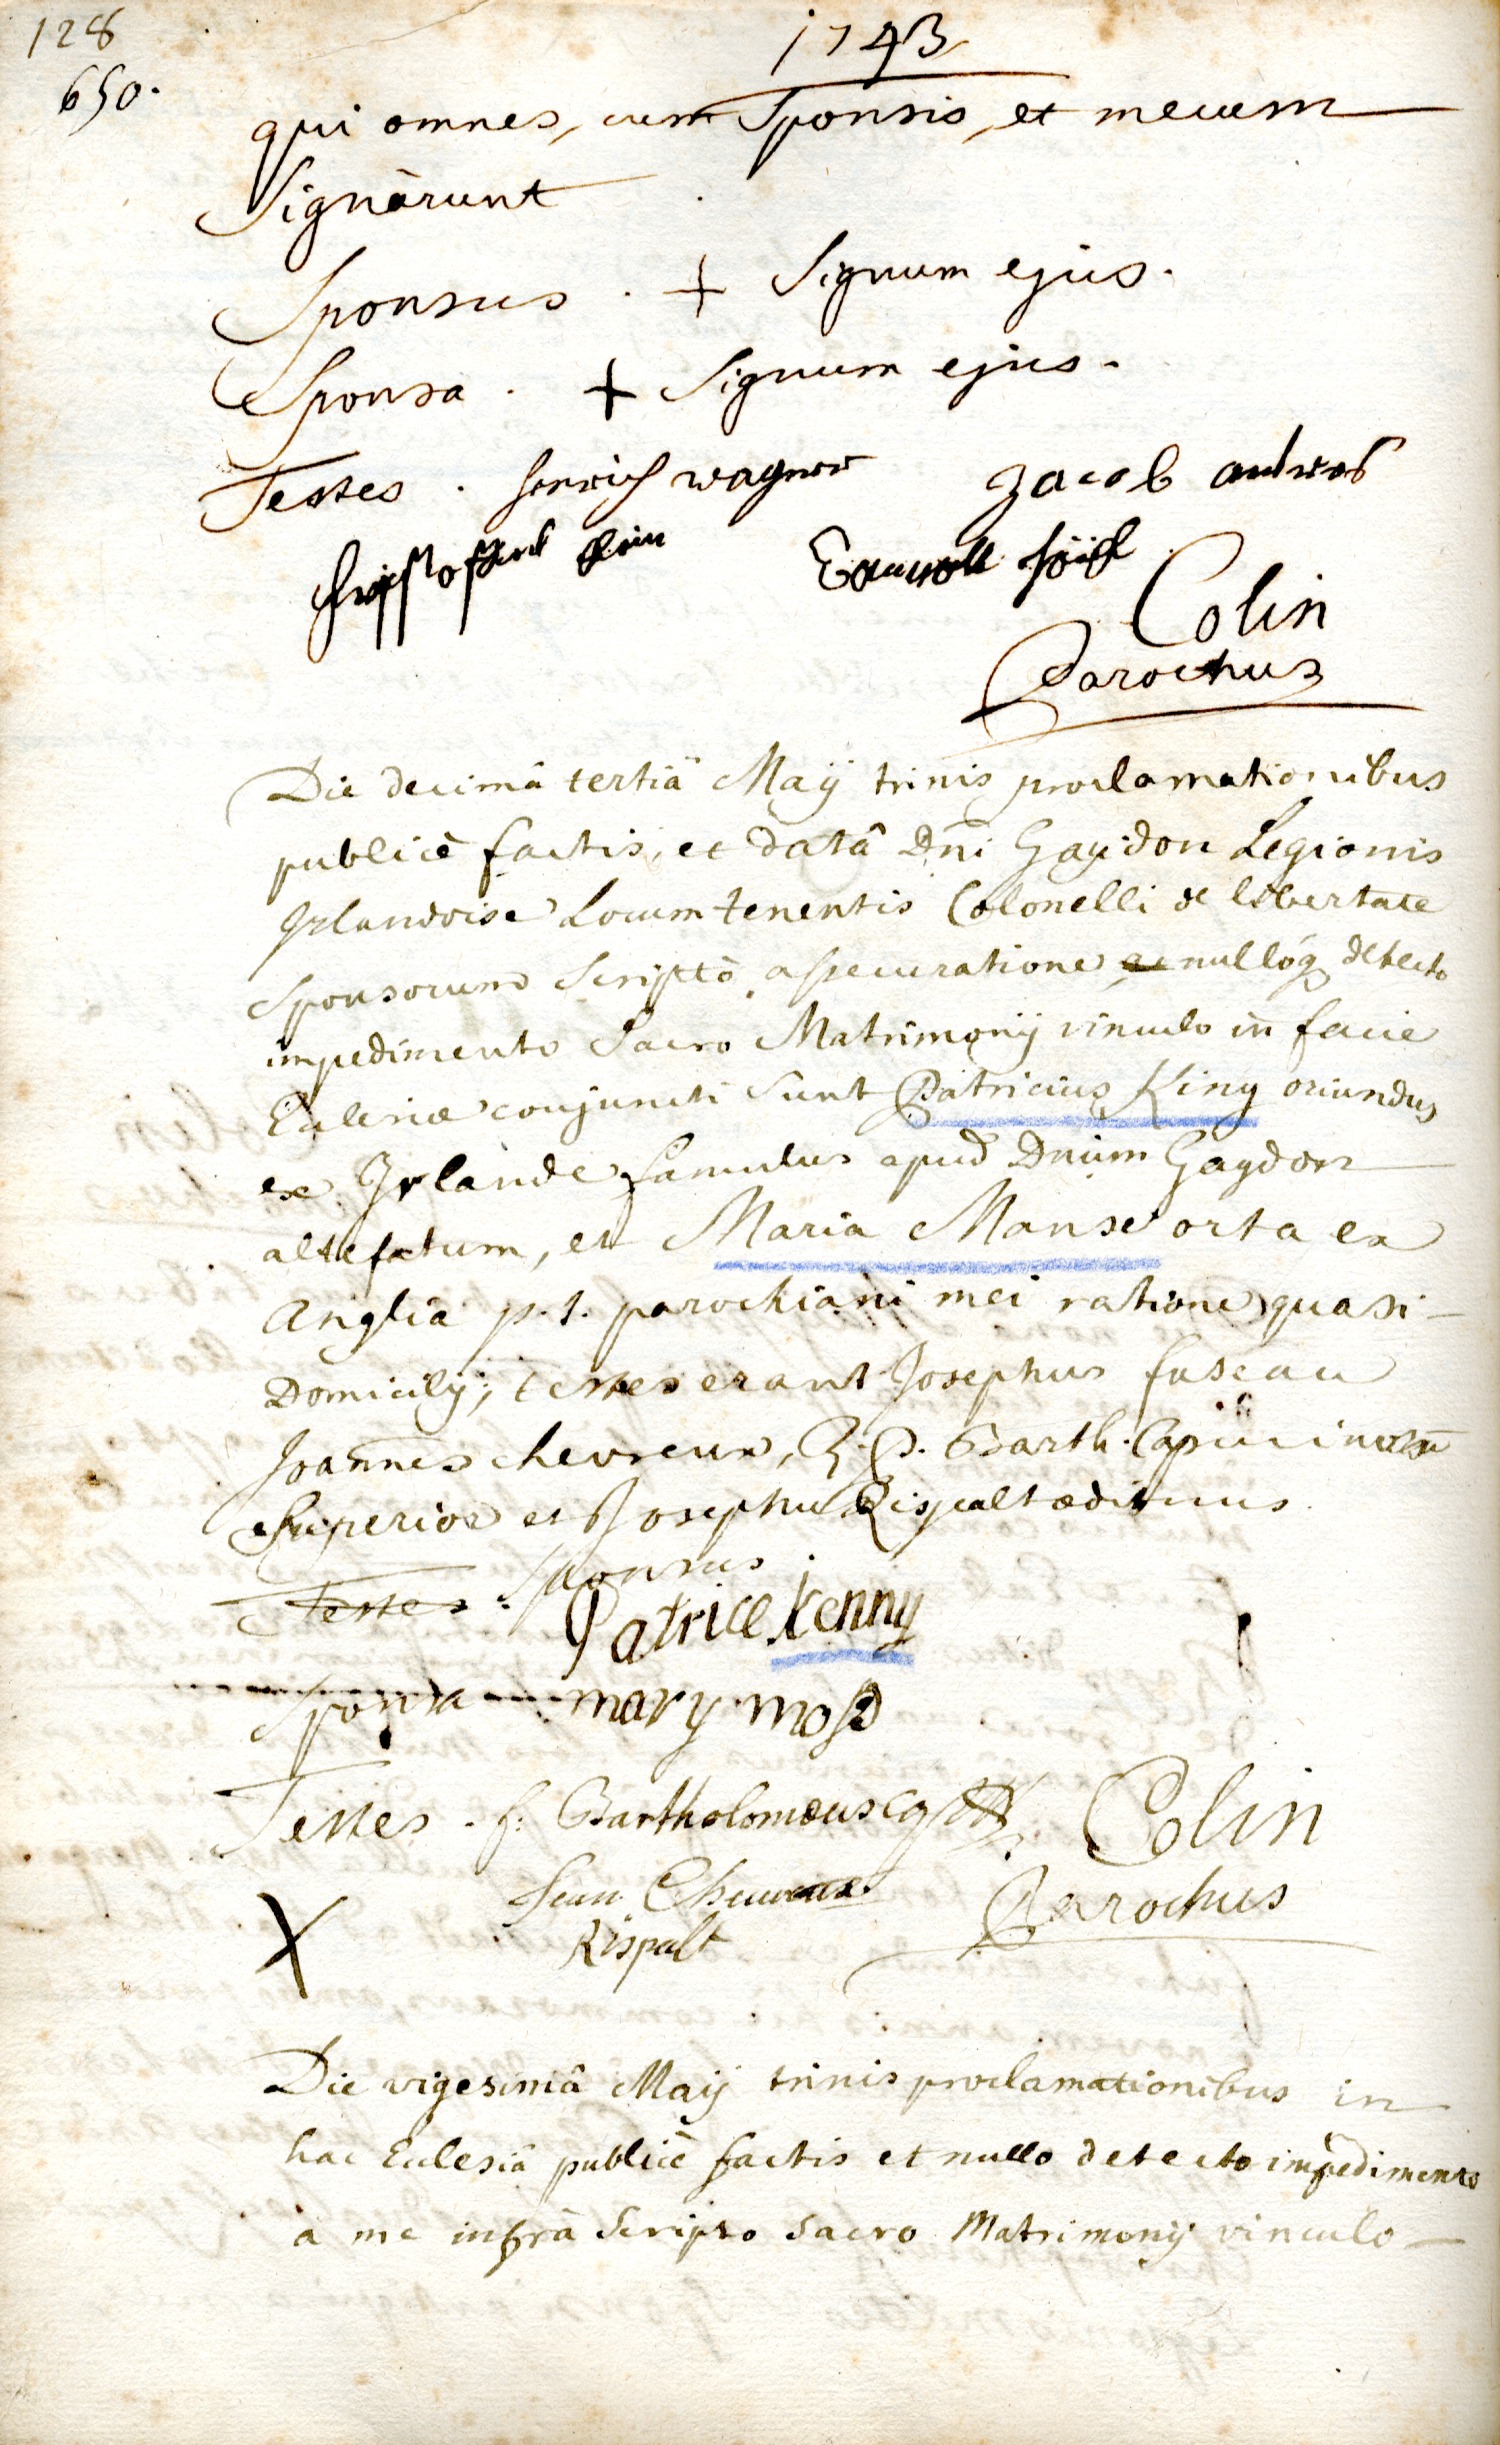 128
1743
650.
qui omnes, cum Sponsis, et mecum
Signârunt
Sponsus . + Signum ejus.
Sponsa . + Signum ejus.
Testes . henrich wagner Jacob andres
Colin
Parochus
Die decimâ tertiâ Maÿ trinis proclamationibus
publicè factis, et datâ Dni Gaÿdon Legionis
Irlandoise Locumtenentis Colonelli de libertate
Sponsorum Scriptô assecuratione nullóq detecto
impedimento Sacro Matrimonÿ vinculo in facie
Eclesiæ conjuncti sunt Patricius King oriundus
ex Irlande famulus apud Dnum Gaydon
altefatum, et Maria Manse orta ex
Anglia p.t. parochiani mei ratione quasi
Domicilÿ; testes erant Josephus faseau
Joannes chevreux, R.P. Barth. Capucinorū
Superior et Josephus Rispalt ædituus.
Testes . Sponsus .
Patrice kenny
Sponsa mary moss
Testes . f. Bartholomæus Colin
Jean Parochus
Rispalt
X
Die vigesimâ Maÿ trinis proclamationibus in
hac Eclesiâ publicè factis et nullo detecto impedimento
a me infrà Scripto Sacro Matrimonÿ vinculo